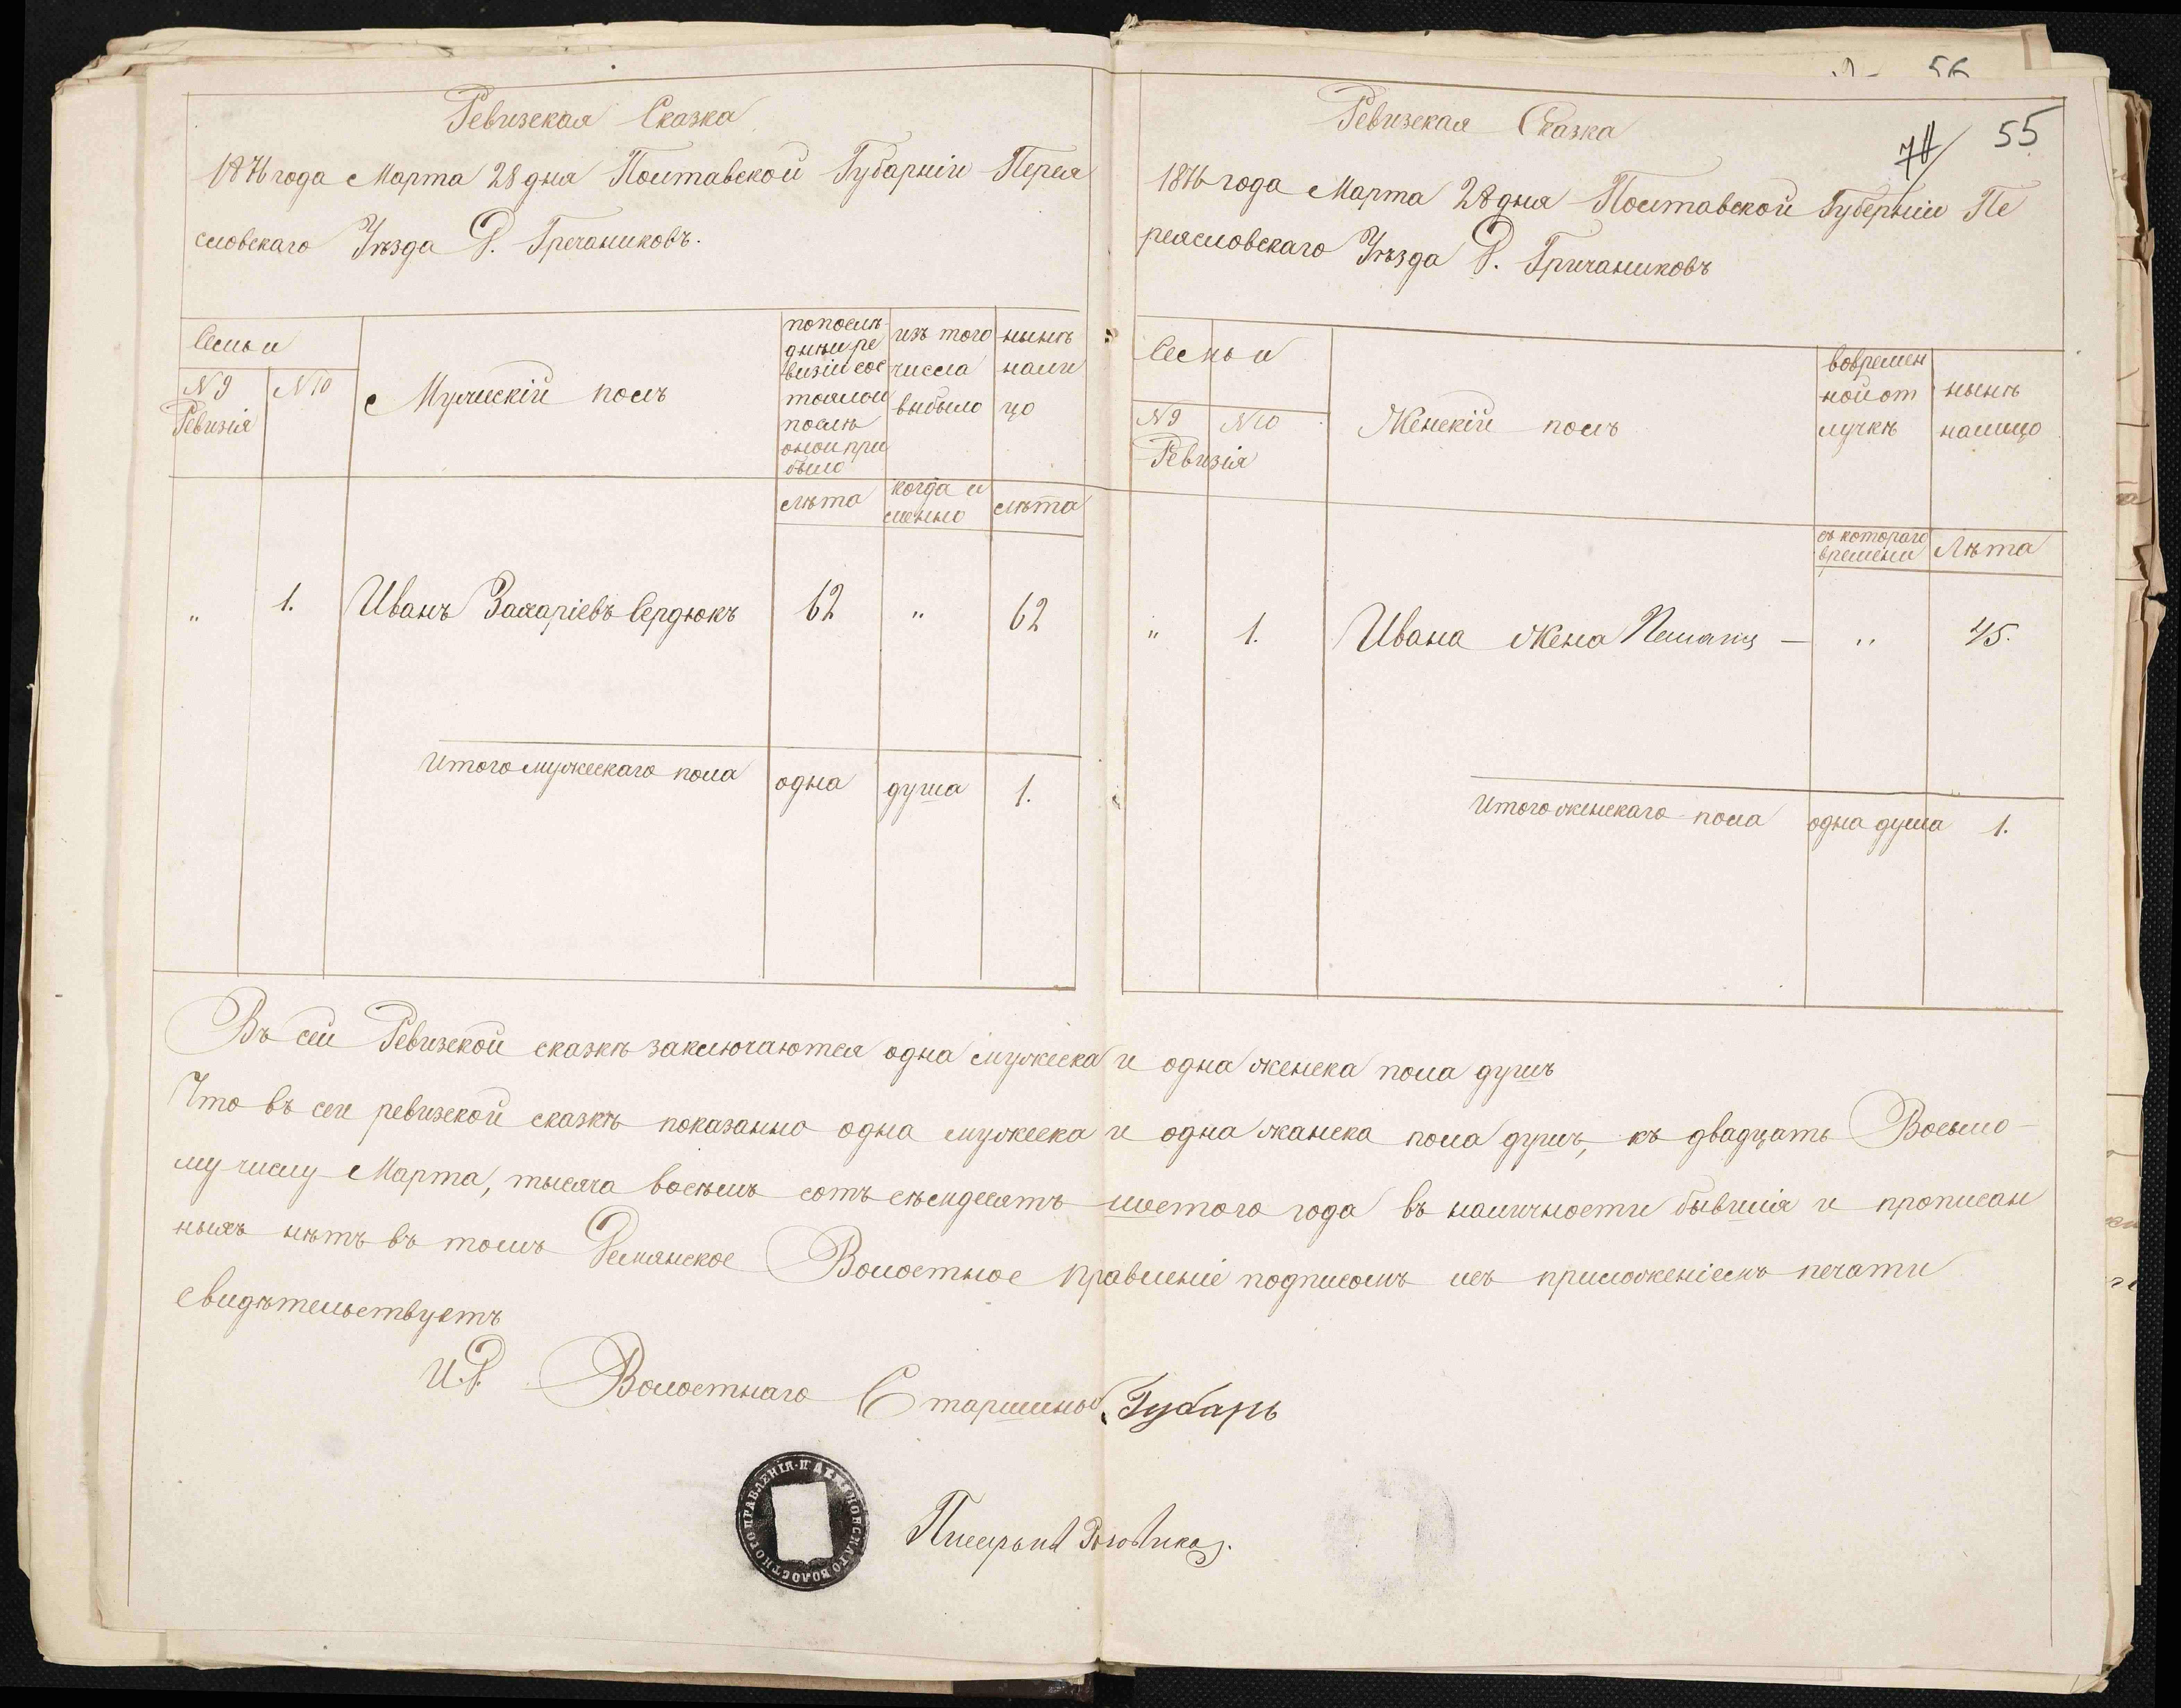 Ревизская Сказка
1876 года Марта 28 дня Полтавской Губарніи Перея
словскаго Уѣзда Д. Гречаниковъ.
Семьи
N 9
Ревизія
N 10
Мужискій полъ
попослѣ
дныи ре
визіи сос
тоялои
послѣ
онои при
было
изъ того
числа
выбыло
нынѣ
нали
цо
лѣта
когда и
менно
лѣта
"
1.
Иванъ Захаріевъ Сердюкъ
62
"
62
Итого мужескаго пола
одна
душа
1.
56
Ревизская Сказка
55
1876 года Марта 28 дня Полтавской Губерніи Пе
реясловскаго Уѣзда Д. Гричаниковъ
Семьи
N 9
N 10
Ревизія
Женскій полъ
вовремен
ной от
лучкѣ
нынѣ
налицо
съ котораго
времени
Лѣта
"
1.
Ивана жена
"
45.
Итого женскаго пола
одна душа
1.
Въ сеи Ревизской сказкѣ заключаются одна мужеска и одна женска пола душъ
Что въ сеи ревизской сказкѣ показанно одна мужеска и одна жанска пола душъ, къ двадцать Восьмо-
му числу Марта, тысяча восѣмъ сотъ сѣмдесятъ шестого года въ наличности бывшія и прописан
ныхъ нѣтъ въ томъ Демянское Волостное правленіе подписомъ исъ приложеніемъ печати
свидѣтельствуетъ
И.Д. Волостнаго Старшины Губарь
ВОЛОСТНОГО ПРАВЛЕНІЯ
Писарь